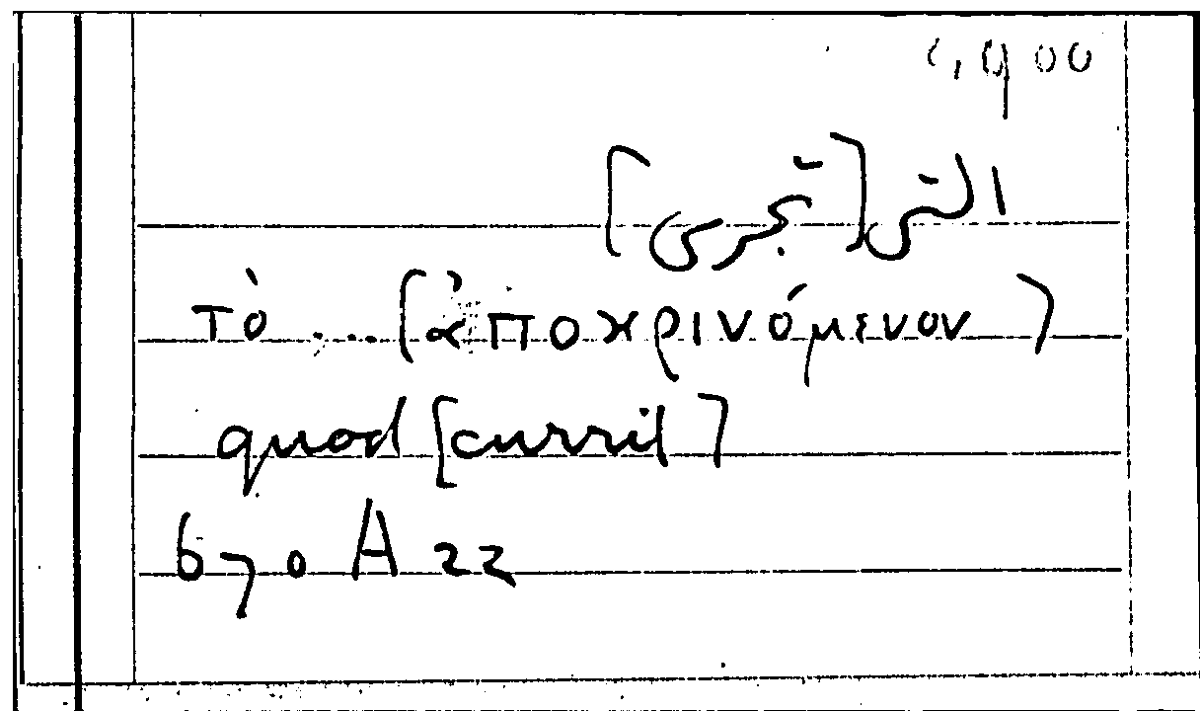 التى [تجرى]
τὸ ... (ἀποκρινόμενον)
quod [currit]
670 A 22